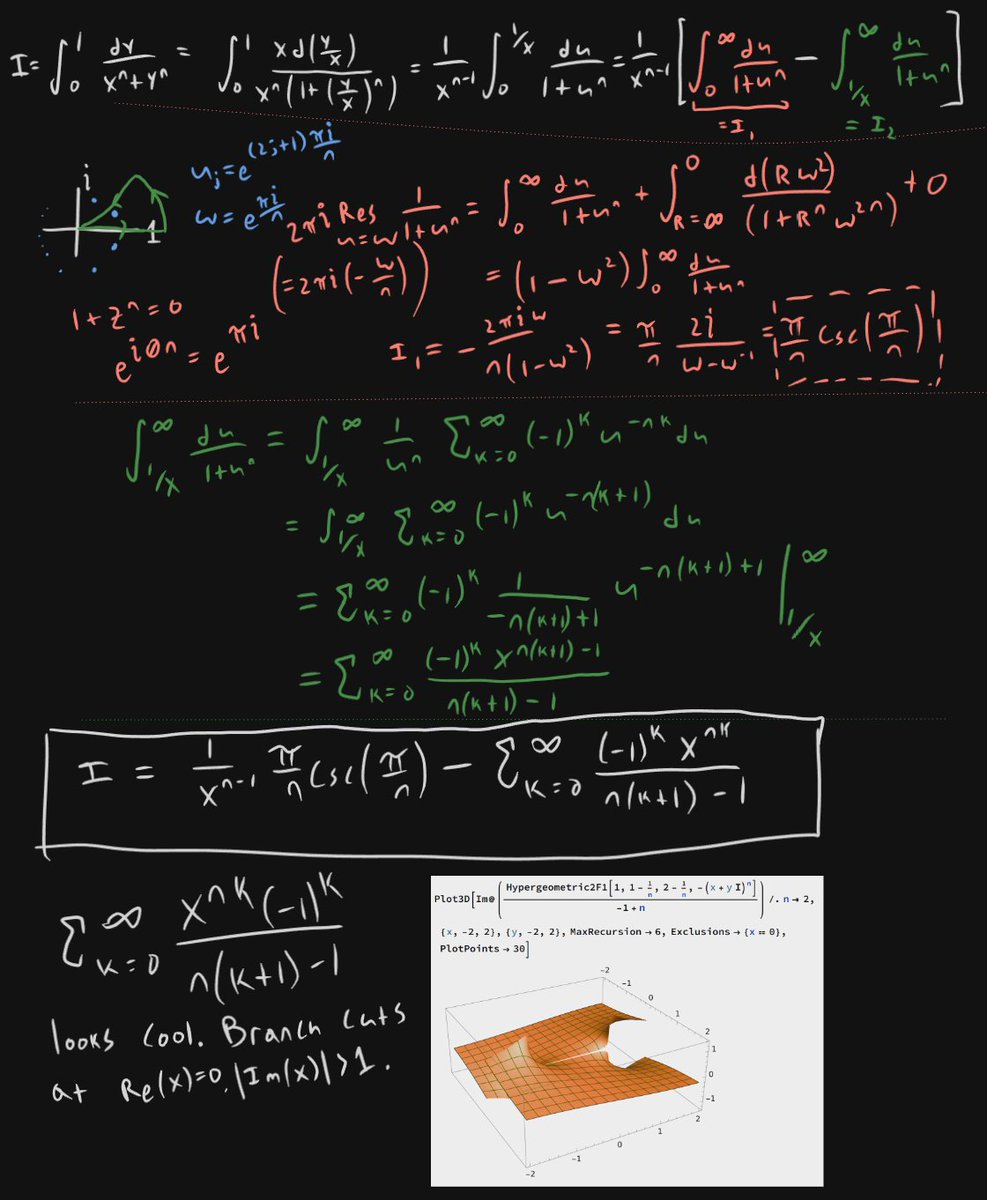 I = ∫₀¹ dy/(xⁿ+yⁿ) = ∫₀¹ x d(y/x)/(xⁿ(1+(y/x)ⁿ)) = 1/xⁿ⁻¹ ∫₀^(1/x) du/(1+uⁿ) = 1/xⁿ⁻¹ [∫₀^∞ du/(1+uⁿ) − ∫_(1/x)^∞ du/(1+uⁿ)]
= I₁ = I₂
i
1
u_j = e^((2j+1)πi/n)
w = e^(πi/n)
2πi Res_(u=w) 1/(1+uⁿ) = ∫₀^∞ du/(1+uⁿ) + ∫_(R=∞)^0 d(Rw²)/(1+Rⁿw²ⁿ) + 0
(=2πi(−w/n)) = (1−w²)∫₀^∞ du/(1+uⁿ)
1+zⁿ=0
e^(iθn) = e^(πi)
I₁ = − 2πiw/(n(1−w²)) = π/n 2i/(w−w⁻¹) = π/n Csc(π/n)
∫_(1/x)^∞ du/(1+uⁿ) = ∫_(1/x)^∞ 1/uⁿ Σ_(k=0)^∞ (−1)^k u^(−nk) du
= ∫_(1/x)^∞ Σ_(k=0)^∞ (−1)^k u^(−n(k+1)) du
= Σ_(k=0)^∞ (−1)^k 1/(−n(k+1)+1) u^(−n(k+1)+1) |_(1/x)^∞
= Σ_(k=0)^∞ (−1)^k x^(n(k+1)−1)/(n(k+1)−1)
I = 1/xⁿ⁻¹ π/n Csc(π/n) − Σ_(k=0)^∞ (−1)^k x^(nk)/(n(k+1)−1)
Σ_(k=0)^∞ x^(nk)(−1)^k/(n(k+1)−1)
looks cool. Branch cuts
at Re(x)=0, |Im(x)|>1.
Plot3D[Im@(Hypergeometric2F1[1, 1 - 1/n, 2 - 1/n, -(x + y I)^n]/(-1 + n)) /. n → 2,
{x, -2, 2}, {y, -2, 2}, MaxRecursion → 6, Exclusions → {x == 0},
PlotPoints → 30]
-2
-1
0
1
2
1
0
-1
2
1
0
-1
-2